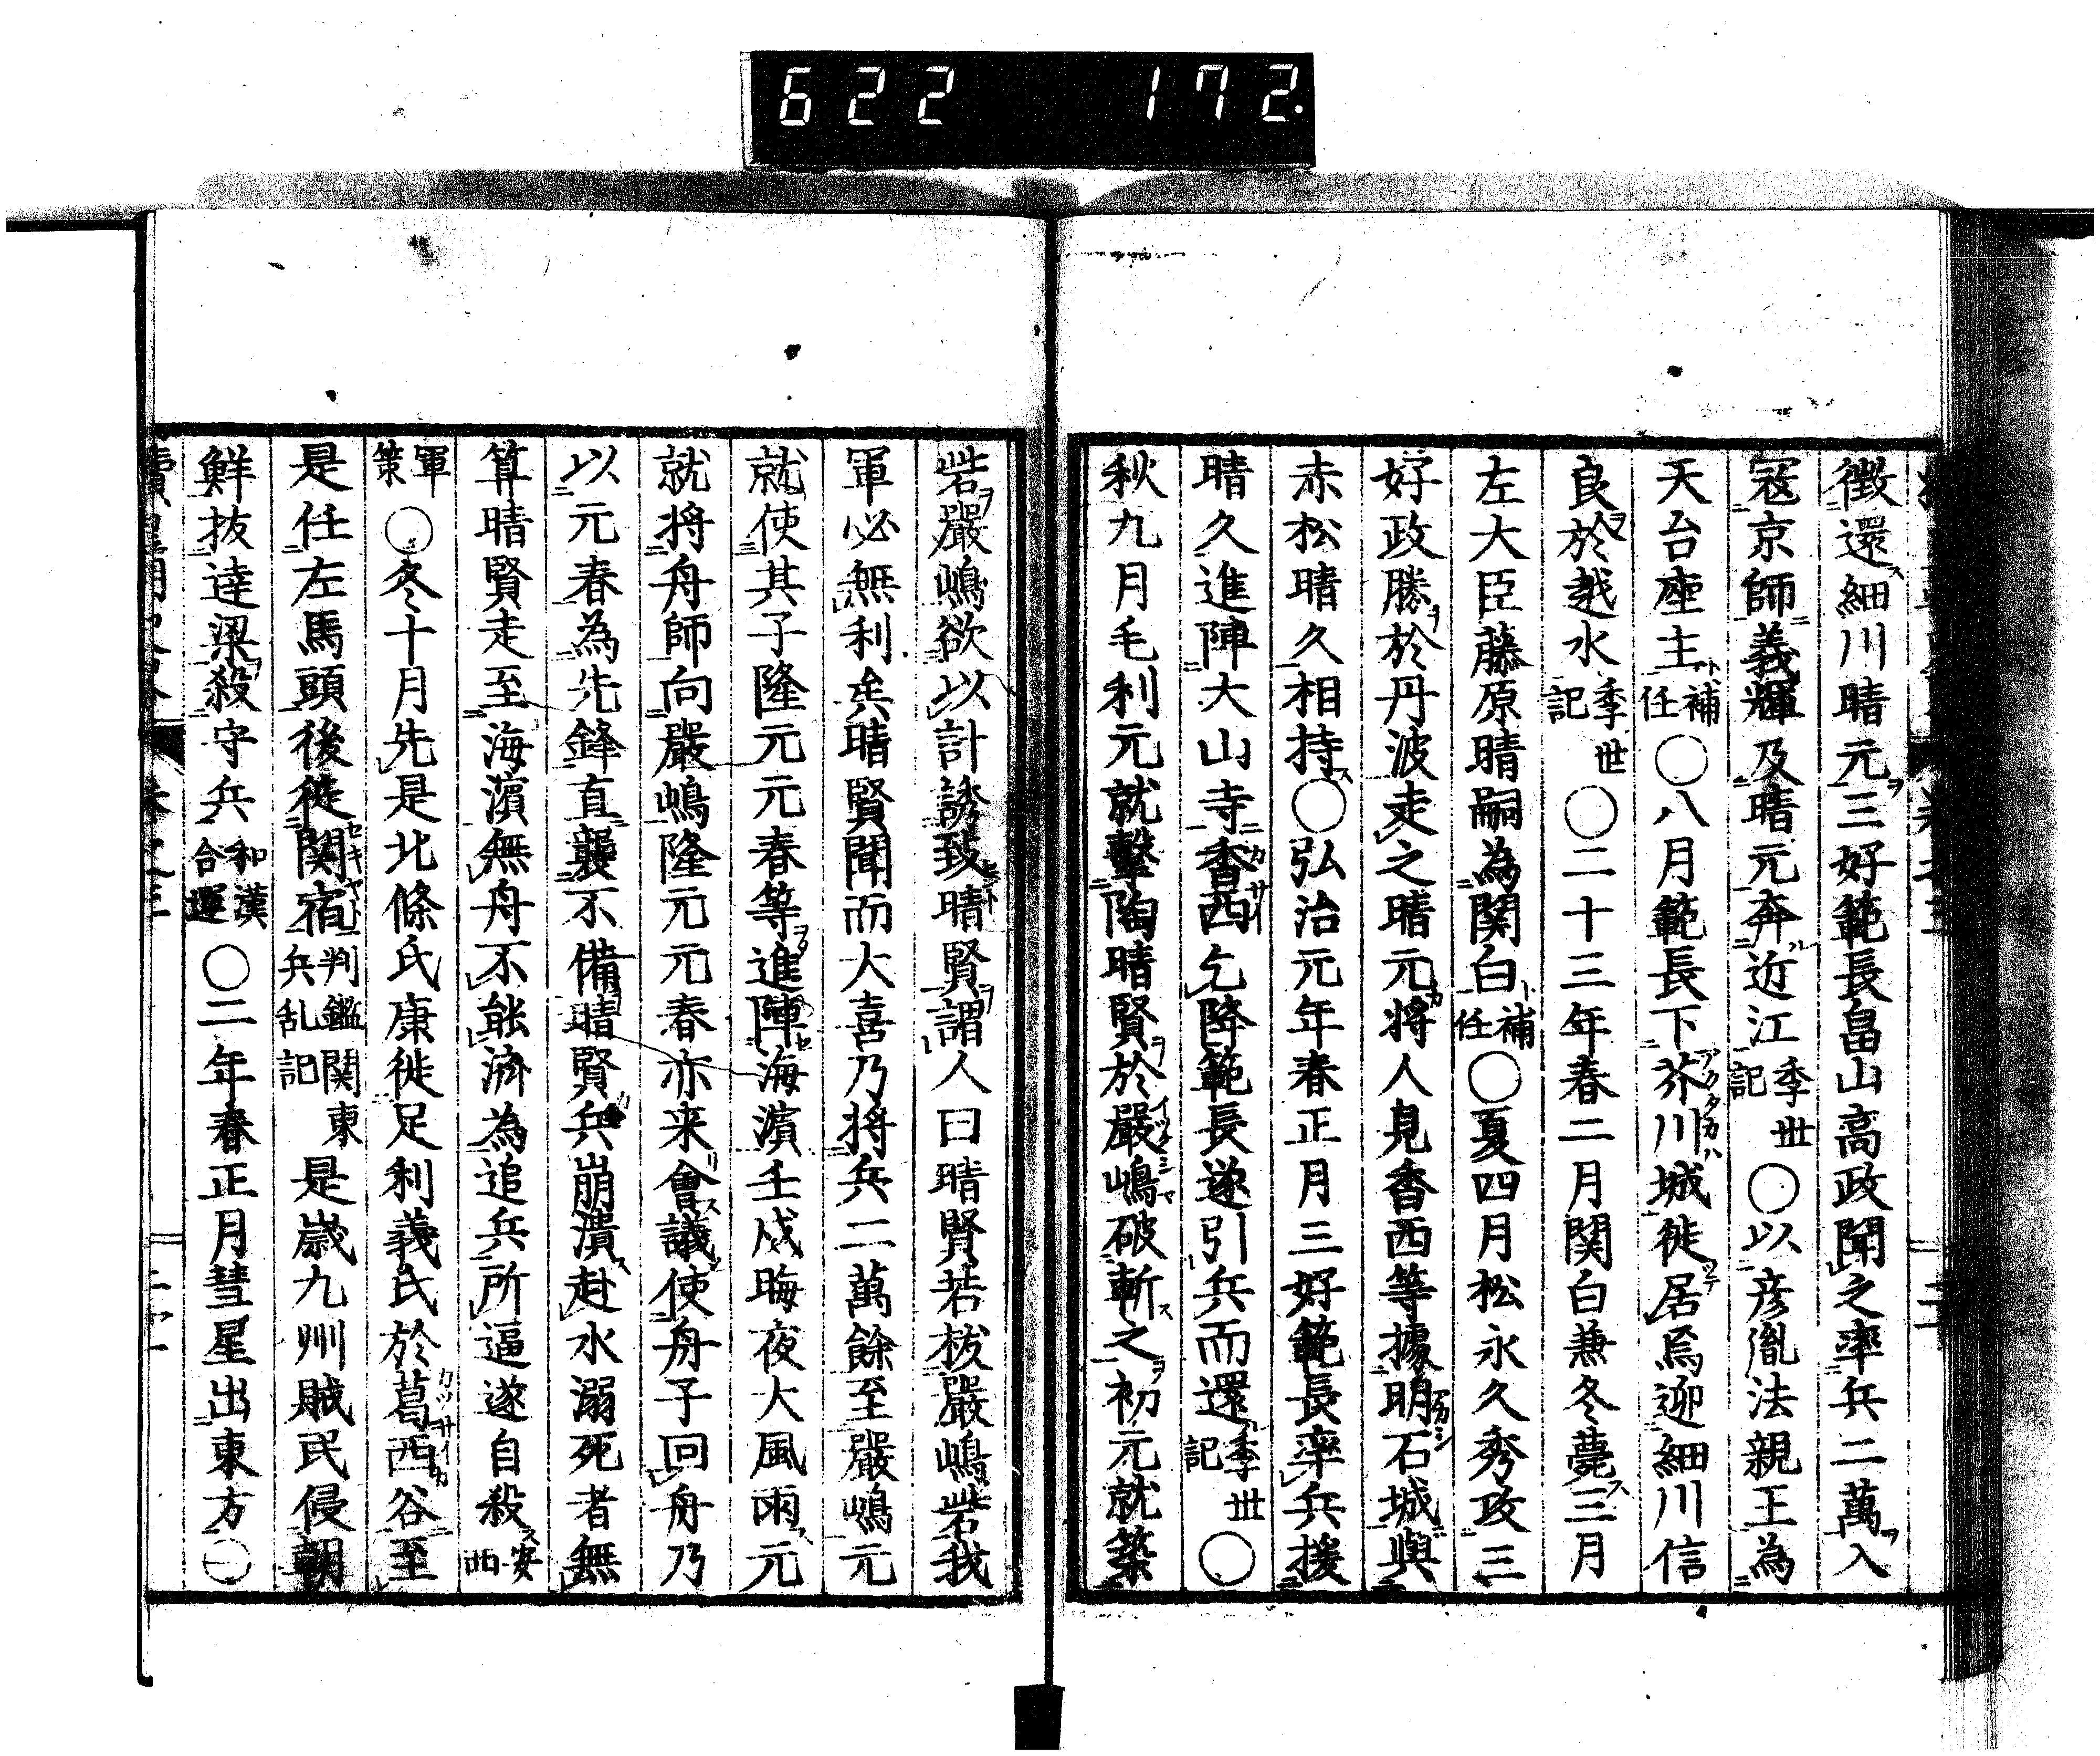 622 172.
徴還細川晴元三好範長畠山高政聞之率兵二萬入
寇京師義輝及晴元奔近江季世記〇以彦胤法親王為
天台座主補任〇八月範長下芥川城徙居焉迎細川信
良於越水季世記〇二十三年春二月関白兼冬薨三月
左大臣藤原晴嗣為関白補任〇夏四月松永久秀攻三
好政勝於丹波走之晴元将人見香西等據明石城與
赤松晴久相持〇弘治元年春正月三好範長率兵援
晴久進陣大山寺香西乞降範長遂引兵而還季世記〇
秋九月毛利元就擊陶晴賢於嚴嶋破斬之初元就築
砦嚴嶋欲以計誘致晴賢謂人曰晴賢若抜嚴嶋砦我
軍必無利矣晴賢聞而大喜乃将兵二萬餘至嚴嶋元
就使其子隆元元春等進陣海濵壬戌晦夜大風雨元
就将舟師向嚴嶋隆元元春亦来會議使舟子回舟乃
以元春為先鋒直襲不備晴賢兵崩潰赴水溺死者無
算晴賢走至海濵無舟不能濟為追兵所逼遂自殺安西
軍策〇冬十月先是北條氏康徙足利義氏於葛西谷至
是任左馬頭後徙関宿判鑑関東兵乱記是歳九州賊民侵朝
鮮抜達梁殺守兵和漢合運〇二年春正月彗星出東方〇